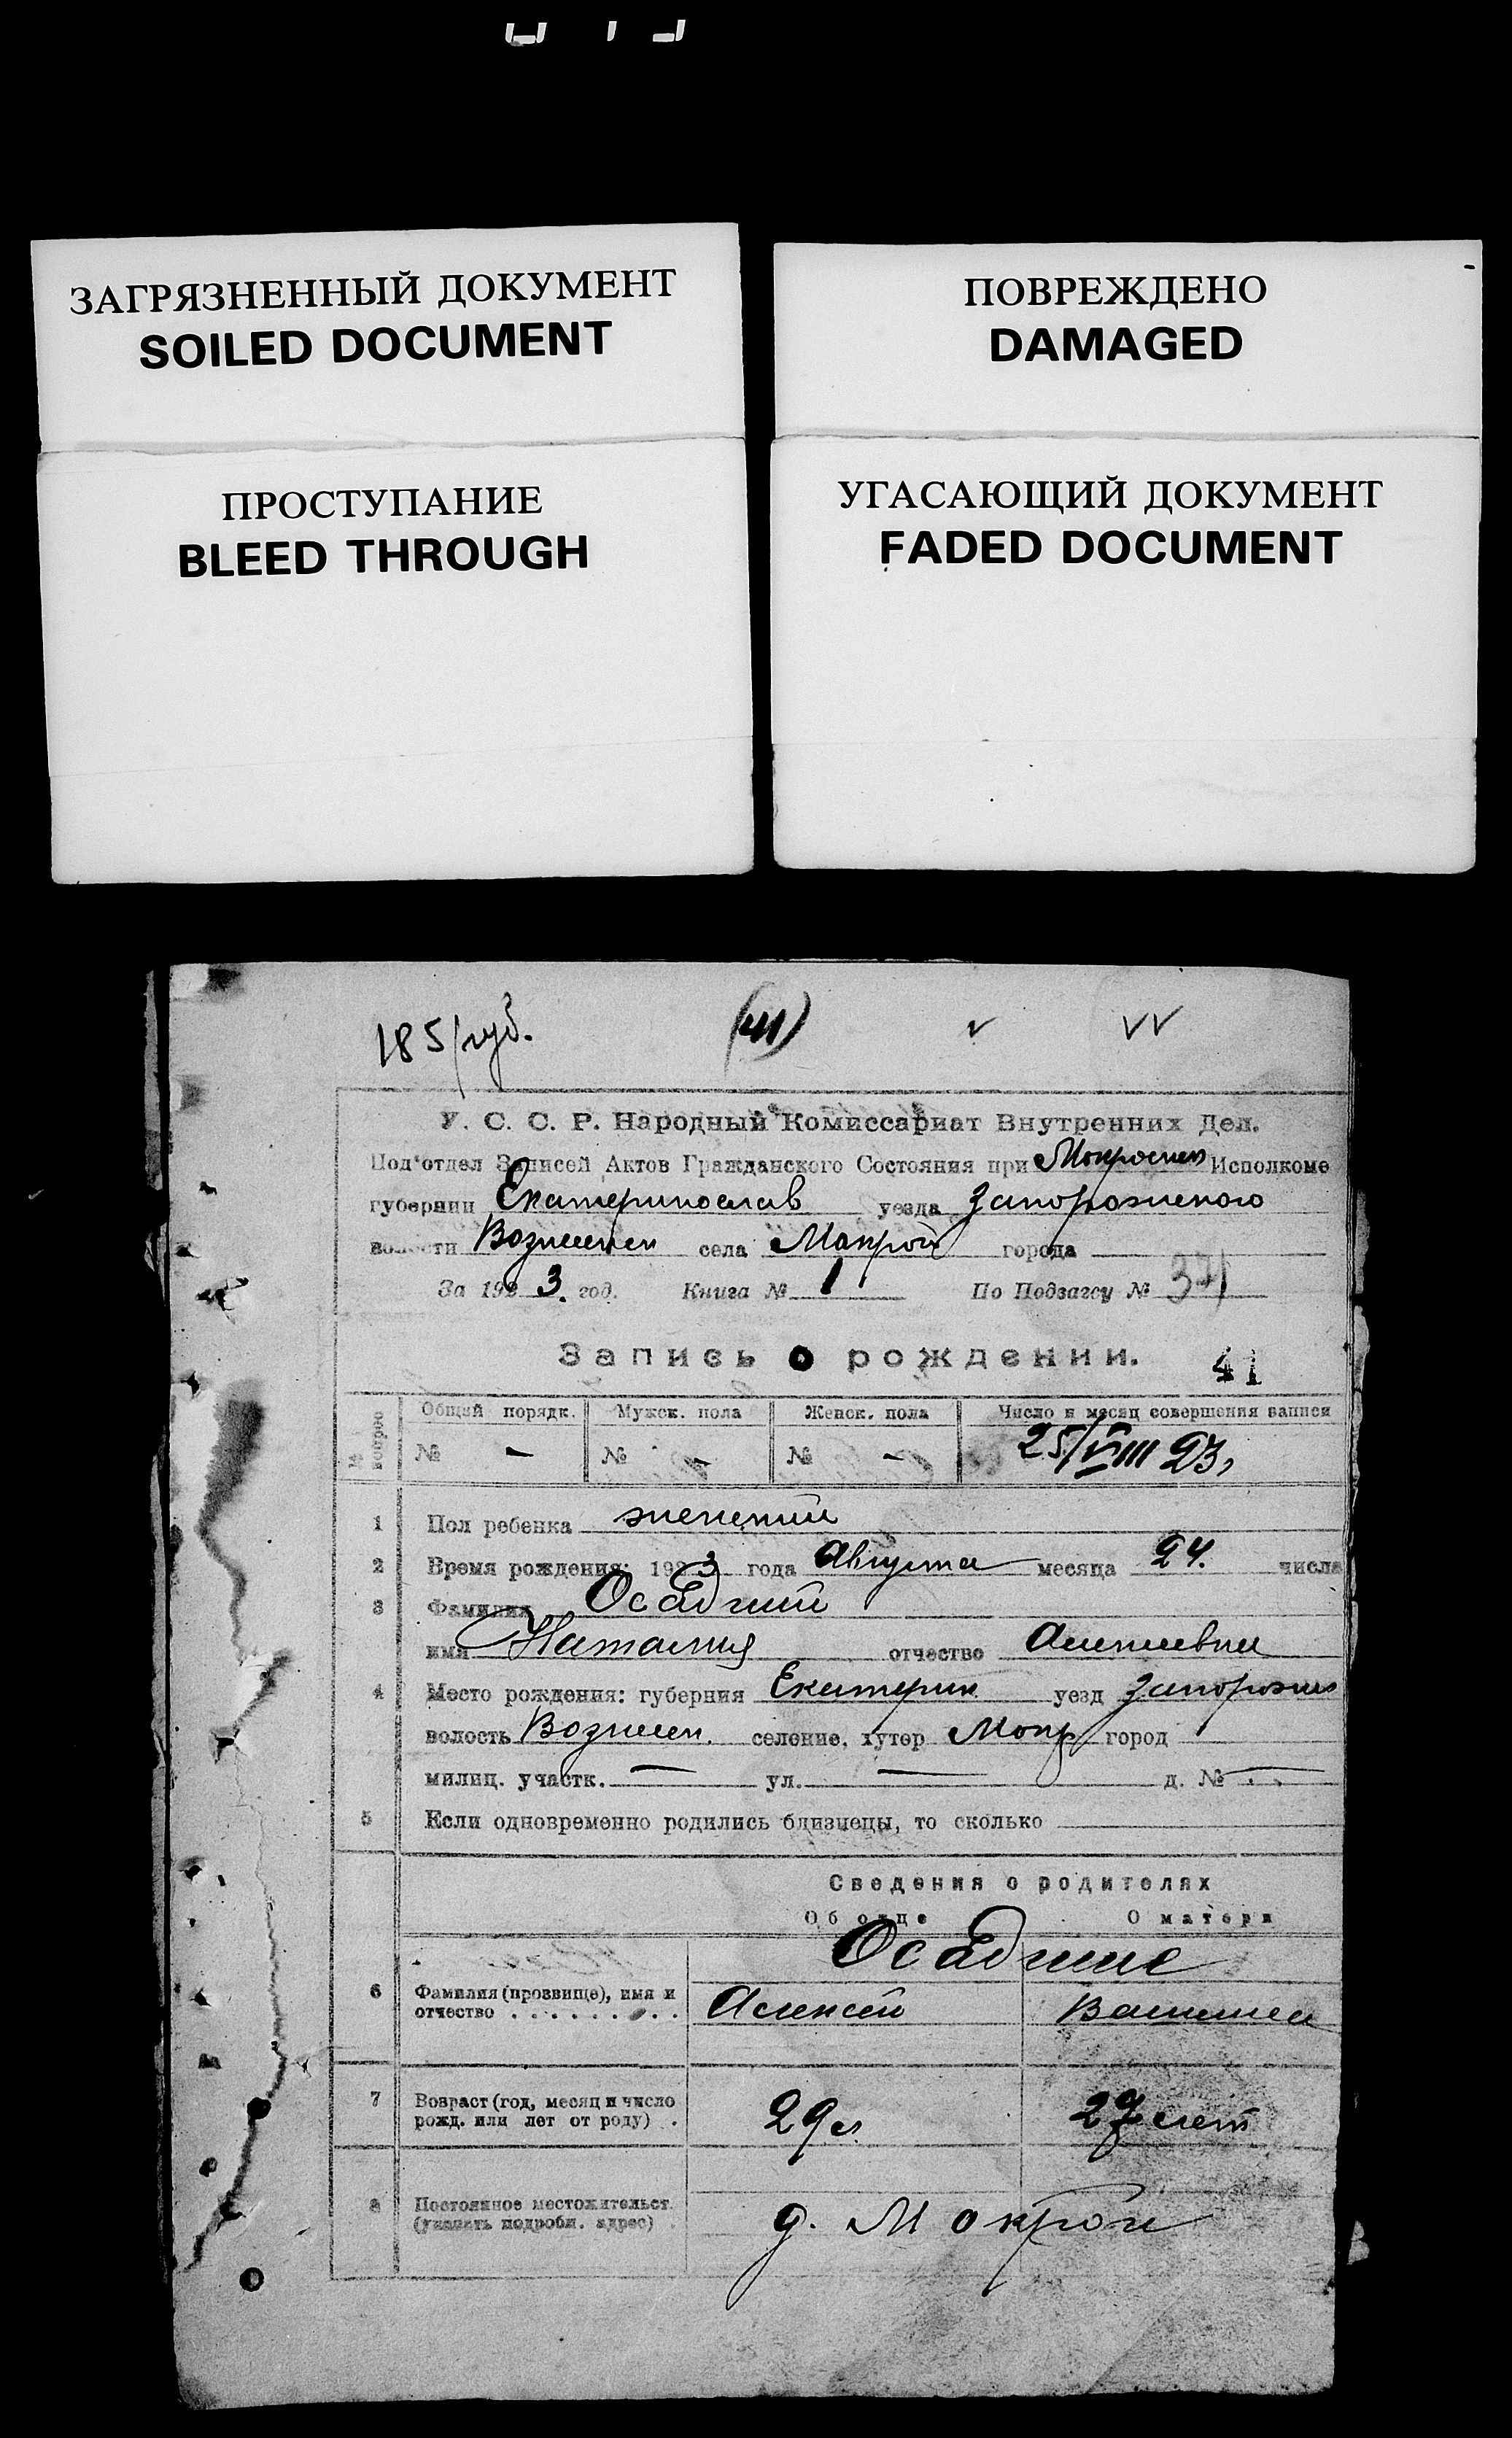 ЗАГРЯЗНЕННЫЙ ДОКУМЕНТ
SOILED DOCUMENT
ПОВРЕЖДЕНО
DAMAGED
ПРОСТУПАНИЕ
BLEED THROUGH
УГАСАЮЩИЙ ДОКУМЕНТ
FADED DOCUMENT
185/руб. (41)
У. С. С. Р. Народный Комиссариат Внутренних Дел.
Под'отдел Записей Актов Гражданского Состояния при Мокрянск Исполкоме
губернии Екатеринослав уезда Запорожского
волости Вознесен села Мокрой города
За 1923. год. Книга № 1 По Подзагсу №
Запись о рождении. 41
Общий порядк. Мужск. пола Женск. пола Число и месяц совершения записи
№ — № — № — 25/VIII 23,
1 Пол ребенка женский
2 Время рождения: 1923 года Августа месяца 24. числа
3 Фамилия Осадчий
имя Наталия отчество Алексеевна
4 Место рождения: губерния Екатерин уезд Запорожск
волость Вознесен. селение, хутор Мокр город
милиц. участк. — ул. — д. №
5 Если одновременно родились близнецы, то сколько
Сведения о родителях
Об отце О матери
Осадчие
6 Фамилия (прозвище), имя и
отчество . . . . . . . . . Алексей
7 Возраст (год, месяц и число
рожд. или лет от роду) . 29 л. 27 лет
8 Постоянное местожительст.
(указать подробн. адрес) . д. Мокрой